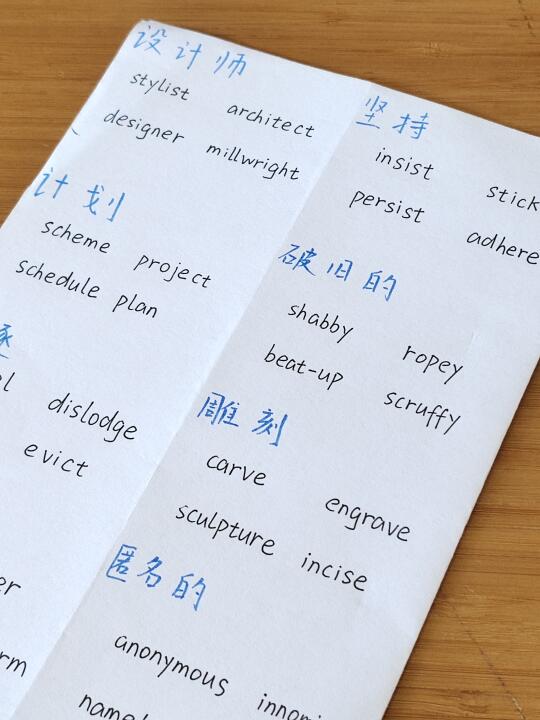 设计师
stylist architect
designer millwright
计划
scheme project
schedule plan
dislodge
evict
坚持
insist stick
persist adhere
破旧的
shabby ropey
beat-up scruffy
雕刻
carve engrave
sculpture incise
匿名的
anonymous